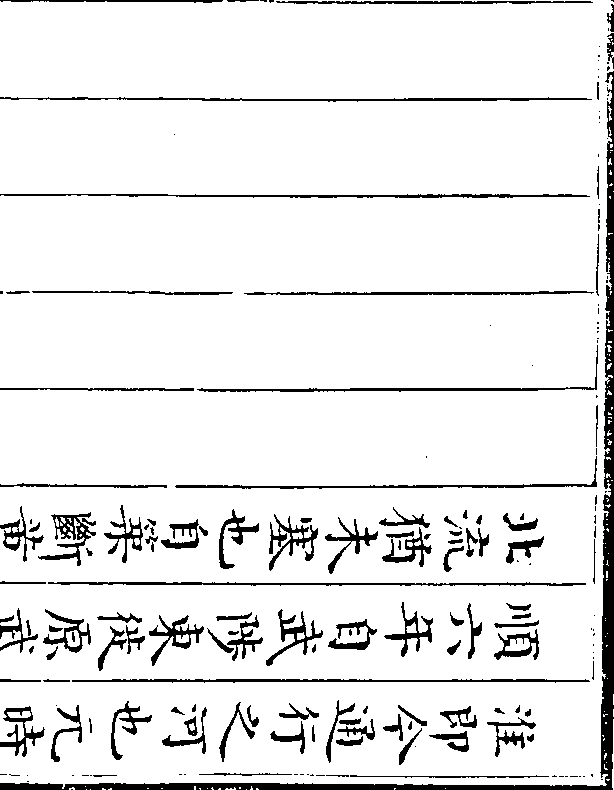 淮即今通行之河也元時
順六年自武陟東徙原武
北流猶未塞也自築斷